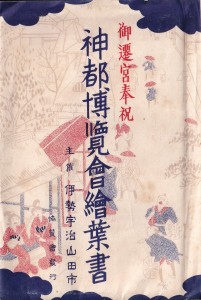 御遷宮奉祝
神都博覽會繪葉書
主催 伊勢宇治山田市